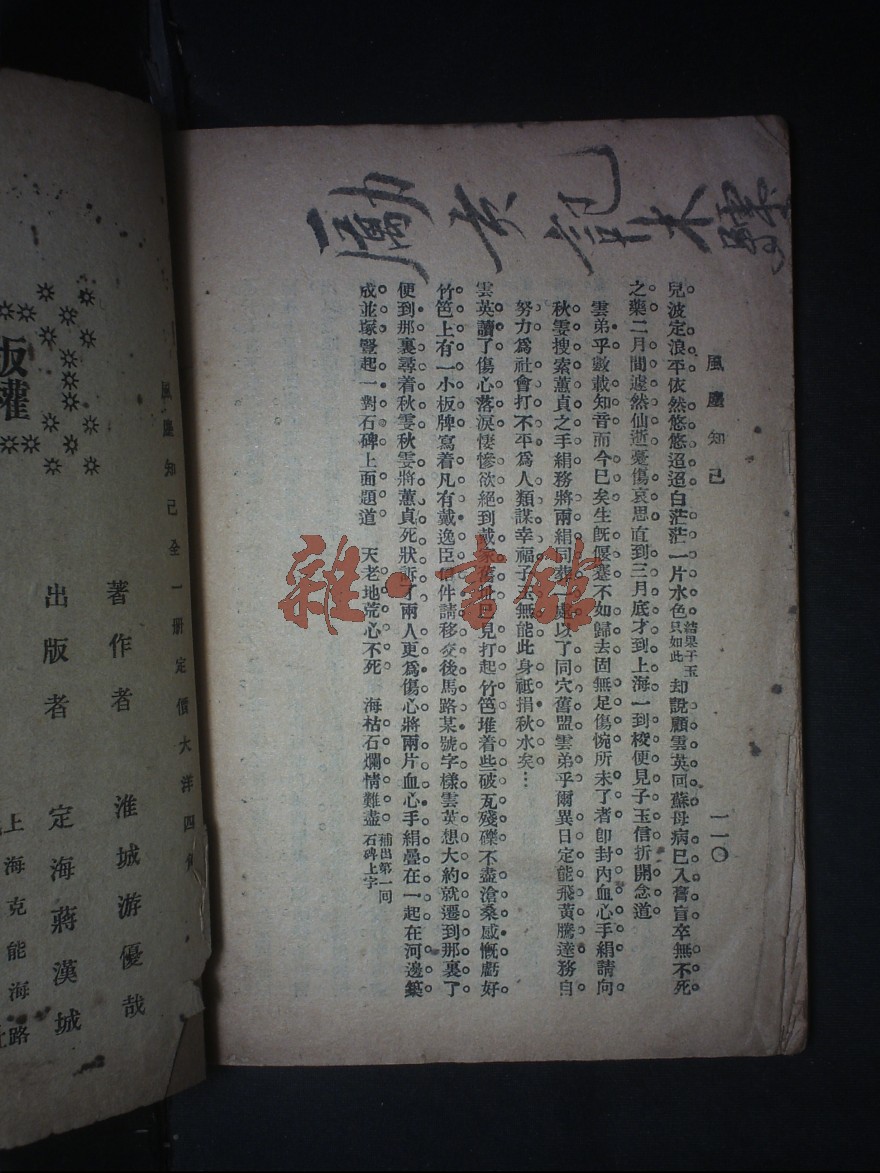 風塵知己
一一〇
兒波定浪平依然悠悠迢迢白茫茫一片水色結果子玉只如此却說顧雲英回蘇母病已入膏肓卒無不死
之藥二月間遽然仙逝憂傷哀思直到三月底才到上海一到校便見子玉信折開念道
雲弟乎數載知音而今已矣生旣偃蹇不如歸去固無足傷惋所未了者卽封內血心手絹請向
秋雯搜索蕙貞之手絹務將兩絹同葬一處以了同穴舊盟雲弟乎爾異日定能飛黃騰達務自
努力爲社會打不平爲人類謀幸福子玉無能此身祗捐秋水矣…
雲英讀了傷心落淚悽慘欲絕到戴家舊址只見打起竹笆堆着些破瓦殘礫不盡滄桑感慨虧好
竹笆上有一小板牌寫着凡有戴逸臣信件請移交後馬路某號字樣雲英想大約就遷到那裏了
便到那裏尋着秋雯秋雯將蕙貞死狀訴了兩人更爲傷心將兩片血心手絹疊在一起在河邊築
成並塚豎起一對石碑上面題道　天老地荒心不死　海枯石爛情難盡補出第一回石碑上字
風塵知己全一册定價大洋四
著作者　淮城游優哉
出版者　定海蔣漢城
上海克能海路
版權
雜·書館